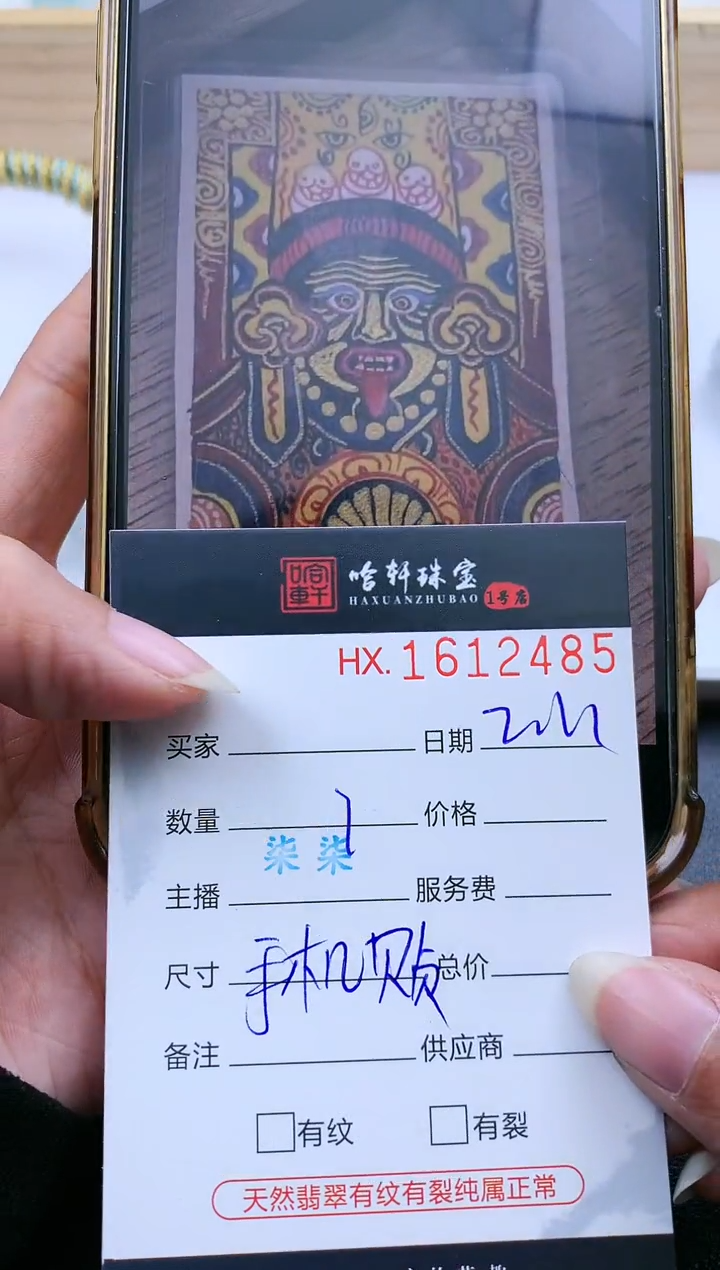 哈轩
哈轩珠宝
HAXUANZHUBAO 1号店
HX.1612485
买家 日期
数量 1 价格
柒柒
主播 服务费
尺寸 手机贴 总价
备注 供应商
有纹 有裂
天然翡翠有纹有裂纯属正常